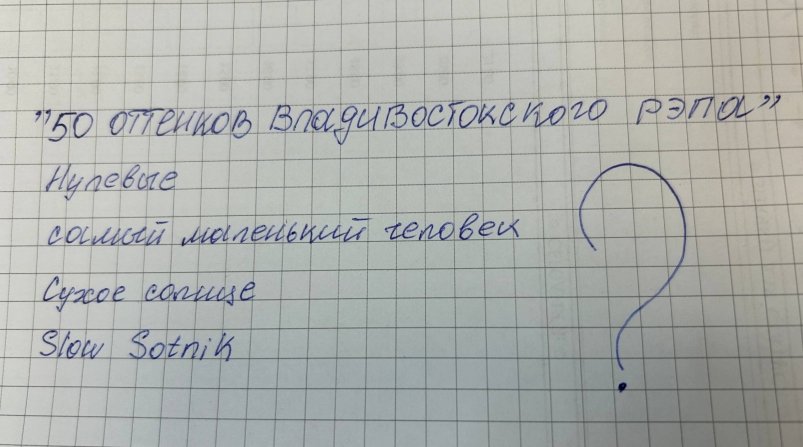 "50 оттенков Владивостокского рэпа"
Нулевые
самый маленький человек
Сухое солнце
Slow Sotnik
?